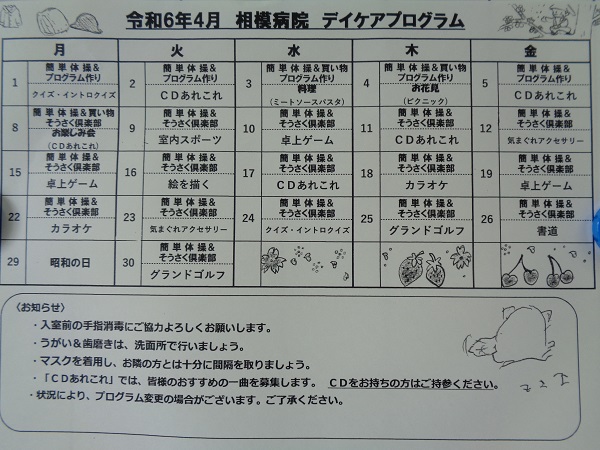 令和6年4月 相模病院 デイケアプログラム
月 火 水 木 金
1 簡単体操&プログラム作り クイズ・イントロクイズ
2 簡単体操&プログラム作り CDあれこれ
3 簡単体操&買い物 プログラム作り 料理 (ミートソースパスタ)
4 簡単体操&買い物 プログラム作り お花見 (ピクニック)
5 簡単体操&プログラム作り CDあれこれ
8 簡単体操&買い物 そうさく倶楽部 お楽しみ会 (CDあれこれ)
9 簡単体操&そうさく倶楽部 室内スポーツ
10 簡単体操&そうさく倶楽部 卓上ゲーム
11 簡単体操&そうさく倶楽部 CDあれこれ
12 簡単体操&そうさく倶楽部 気まぐれアクセサリー
15 簡単体操&そうさく倶楽部 卓上ゲーム
16 簡単体操&そうさく倶楽部 絵を描く
17 簡単体操&そうさく倶楽部 CDあれこれ
18 簡単体操&そうさく倶楽部 カラオケ
19 簡単体操&そうさく倶楽部 卓上ゲーム
22 簡単体操&そうさく倶楽部 カラオケ
23 簡単体操&そうさく倶楽部 気まぐれアクセサリー
24 簡単体操&そうさく倶楽部 クイズ・イントロクイズ
25 簡単体操&そうさく倶楽部 グランドゴルフ
26 簡単体操&そうさく倶楽部 書道
29 昭和の日
30 簡単体操&そうさく倶楽部 グランドゴルフ
〈お知らせ〉
・入室前の手指消毒にご協力よろしくお願いします。
・うがい&歯磨きは、洗面所で行いましょう。
・マスクを着用し、お隣の方とは十分に間隔を取りましょう。
・「CDあれこれ」では、皆様のおすすめの一曲を募集します。 CDをお持ちの方はご持参ください。
・状況により、プログラム変更の場合がございます。ご了承ください。